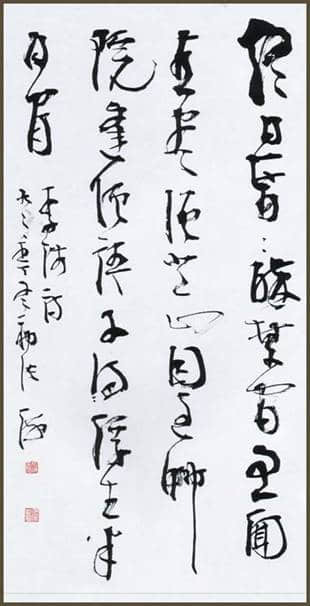 终日昏〻醉梦间忽闻
春尽强登山因过竹
院逢僧话又得浮生半
日闲
李涉诗